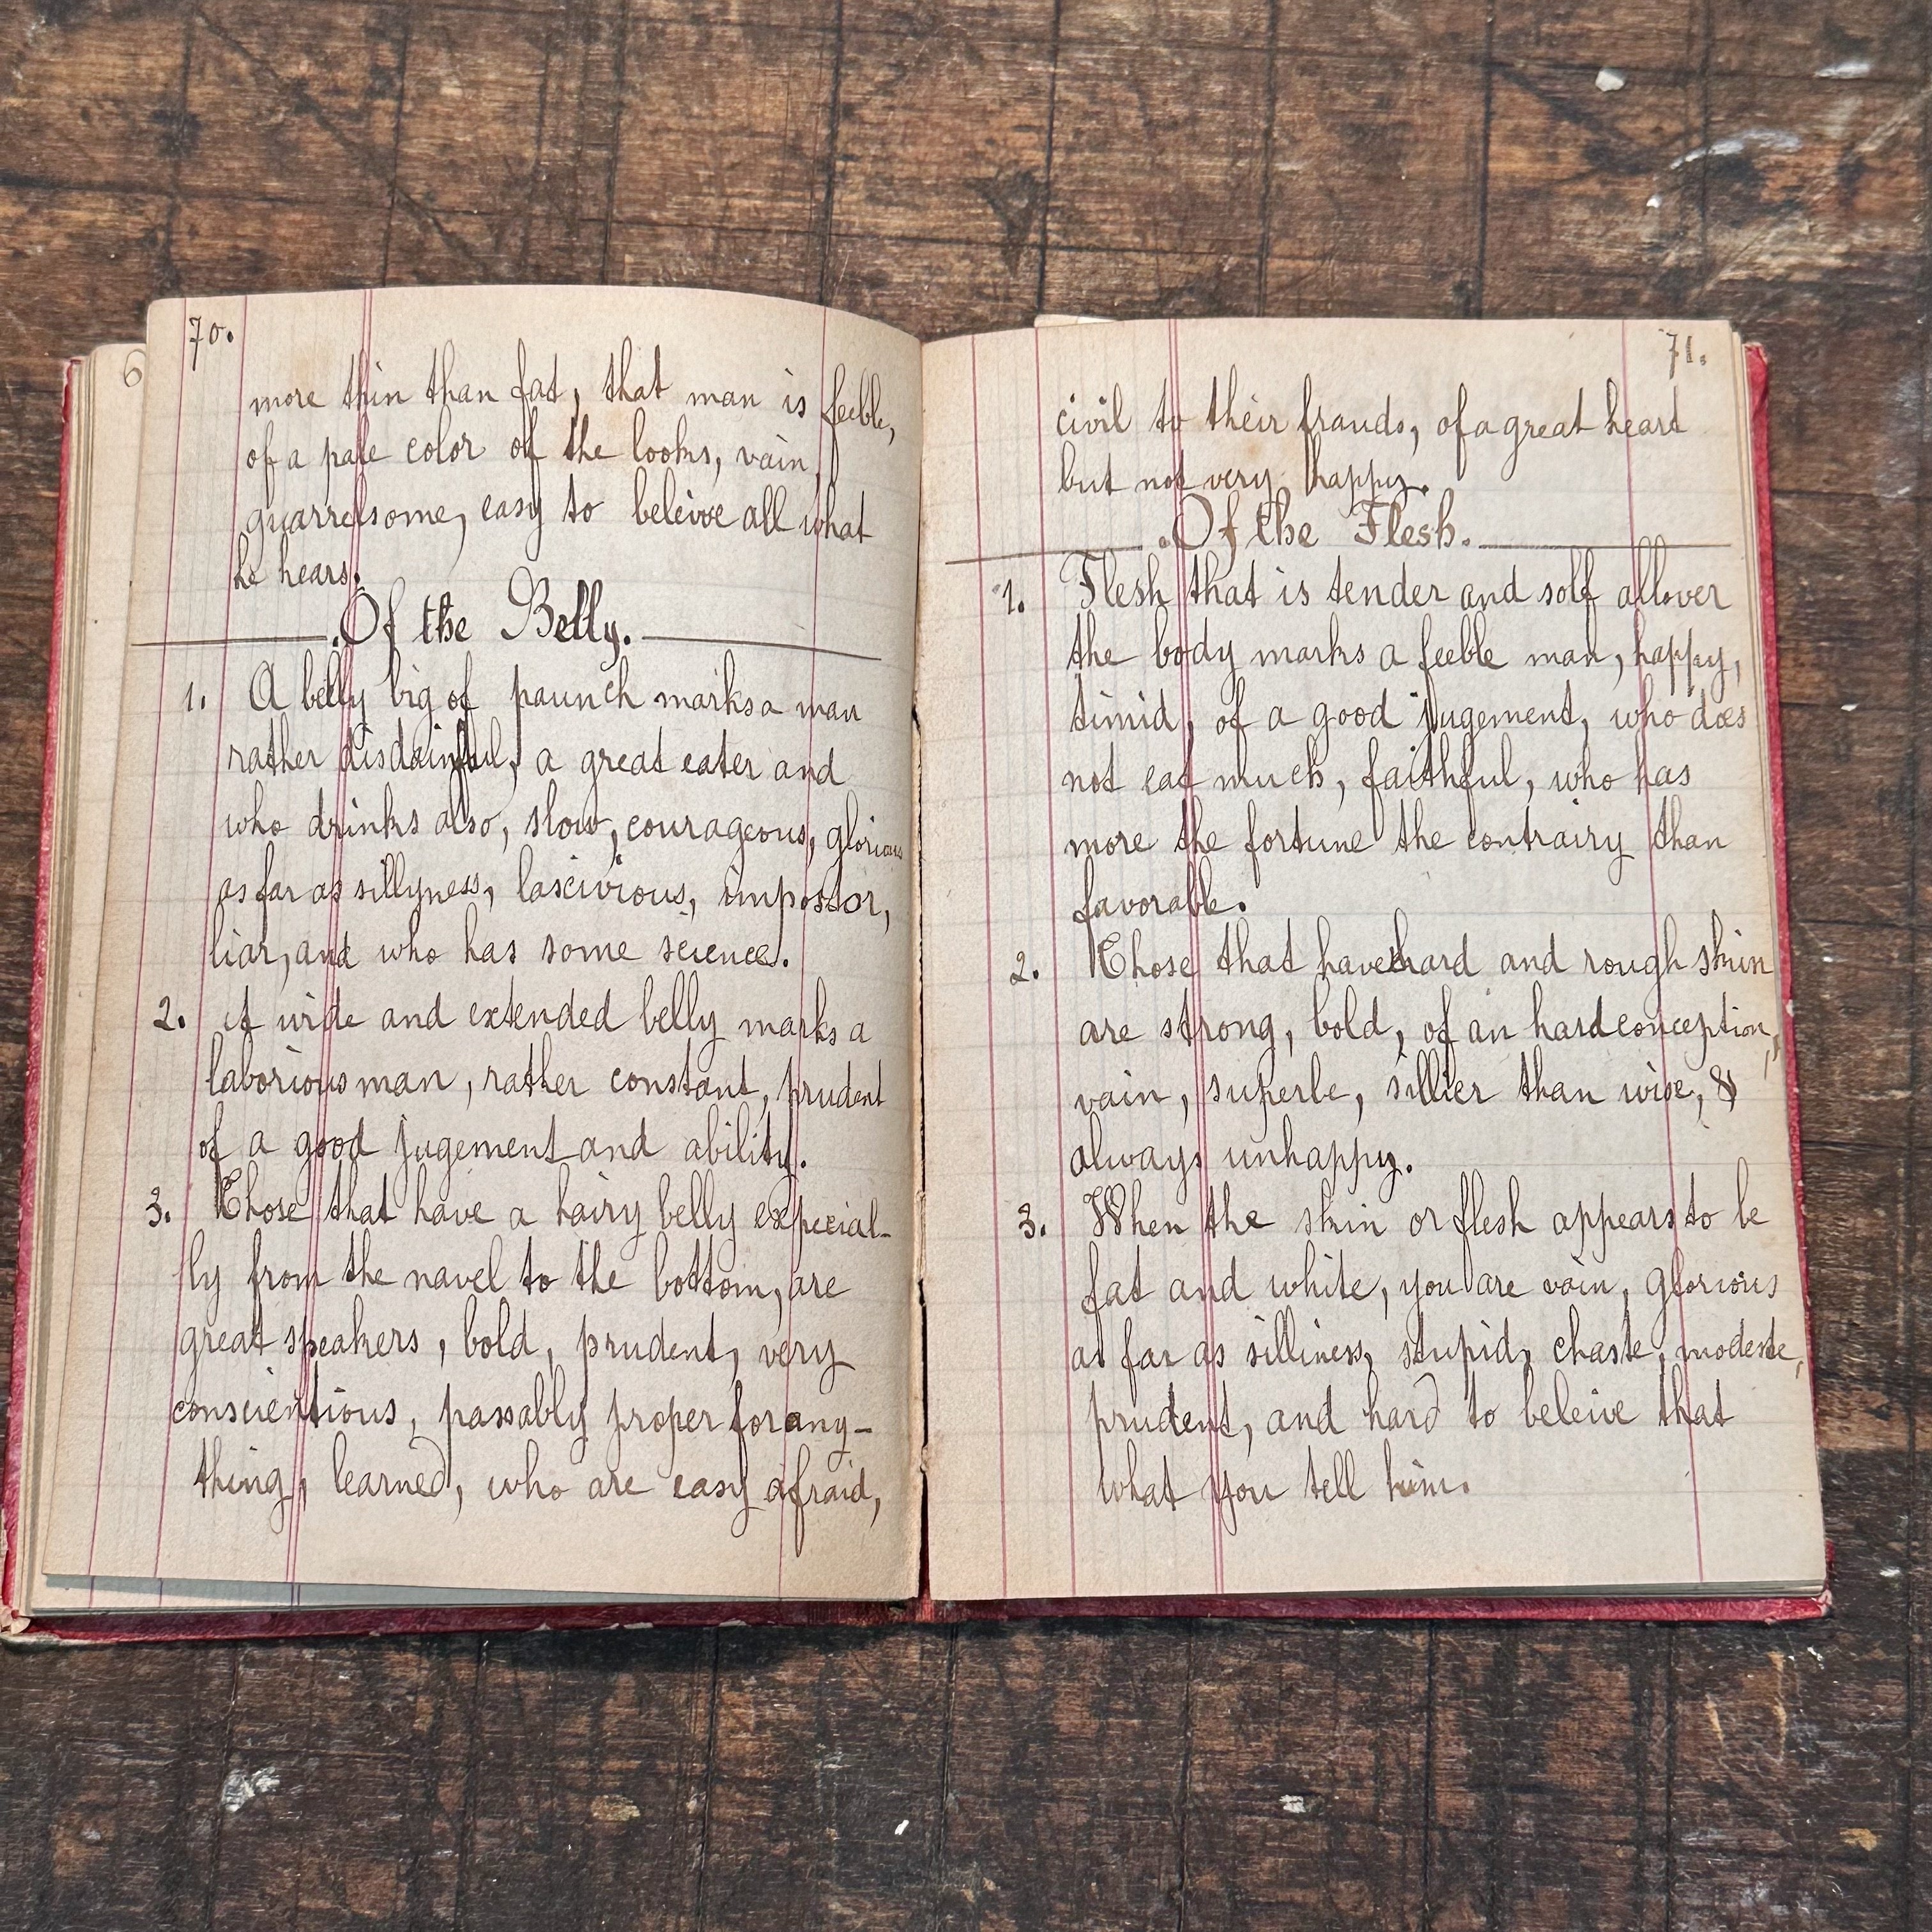 70.
more thin than fat, that man is feeble,
of a pale color of the looks, vain,
quarrelsome, easy to beleive all what
he hears.
.Of the Belly.
1. A belly big of paunch marks a man
rather disdainful, a great eater and
who drinks also, slow, courageous, glorious
as far as sillyness, lascivious, impostor,
liar, and who has some science.
2. A wide and extended belly marks a
laborious man, rather constant, prudent
of a good jugement and ability.
3. Those that have a hairy belly especial-
ly from the navel to the bottom, are
great speakers, bold, prudent, very
conscientious, passably proper for any-
thing, learned, who are easy afraid,
6
71.
civil to their frauds, of a great heart
but not very happy.
.Of the Flesh.
1. Flesh that is tender and soft all over
the body marks a feeble man, happy,
timid, of a good jugement, who does
not eat much, faithful, who has
more the fortune the contrairy than
favorable.
2. Those that have hard and rough skin
are strong, bold, of an hard conception,
vain, superbe, sillier than wise, &
always unhappy.
3. When the skin or flesh appears to be
fat and white, you are vain, glorious
as far as silliness, stupid, chaste, modeste,
prudent, and hard to beleive that
what you tell him.